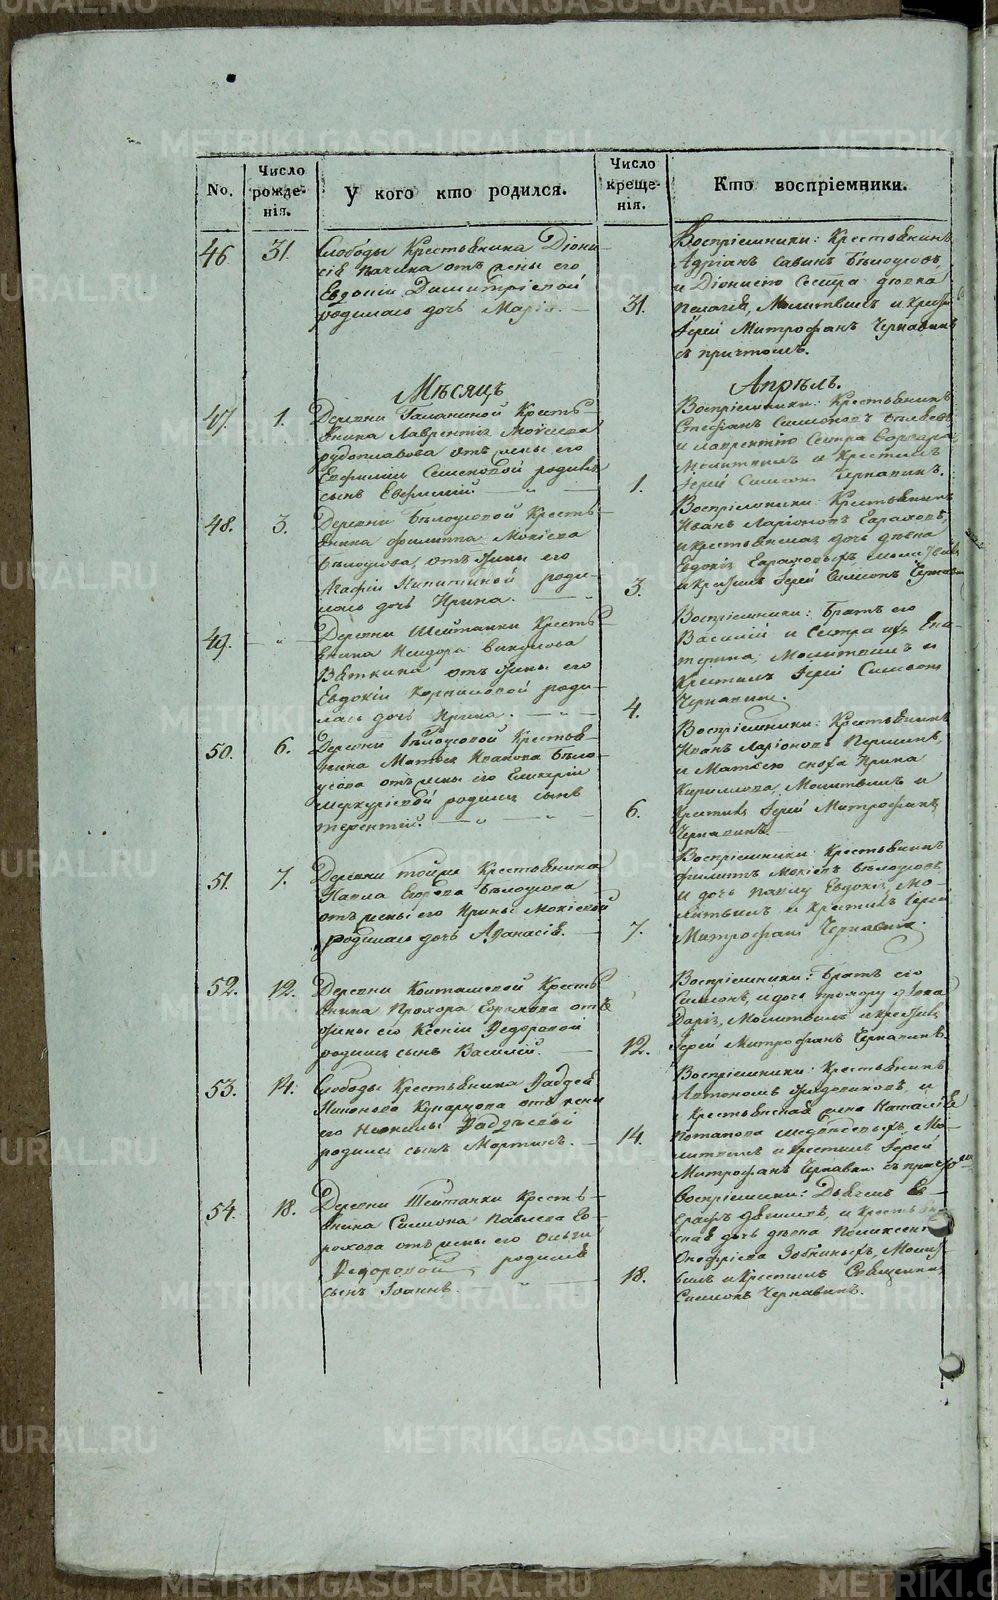 No.
Число
рожде-
нія.
У кого кто родился.
Число
креще-
нія.
Кто воспріемники.
46
31.
Слободы Крестьянина Діони-
сія отъ жены его
Евдокіи Димитріевой
родилась дочь Марія.
31.
Воспріемники: Крестьянинъ
Адріанъ Савинъ Бѣлоусовъ,
и Діонисію сестра дѣвка
Пелагія, Молитвилъ и крест.
Іерей Митрофанъ Чернавинъ
съ причтомъ.
Мѣсяцъ
Апрѣль.
47.
1.
Деревни Галаниной Кресть-
янина Лаврентія Моисеева
отъ жены его
Евфиміи Семеновой родился
сынъ Евфимій.
1.
Воспріемники: Крестьянинъ
Стефанъ Симоновъ
и Лаврентію сестра Варвара
Молитвилъ и Крестилъ
Іерей Симеонъ Чернавинъ.
48.
3.
Деревни Бѣлоусовой Кресть-
янина Филиппа Мокіева
Бѣлоусова, отъ жены его
Агафіи Никитиной роди-
лась дочь Ирина.
3.
Воспріемники: Крестьянинъ
Иванъ Ларіоновъ
и крестьянская дочь дѣвка
Евдокія
и крестилъ Іерей Симеонъ
49.
"
Деревни Шейтанки Кресть-
янина Исидора Викулова
Вяткина отъ жены его
Евдокіи Корниловой роди-
лась дочь Ирина.
4.
Воспріемники: Братъ его
Василій и сестра ихъ Ека-
терина, Молитвилъ и
Крестилъ Іерей Симеонъ
Чернавинъ.
50.
6.
Деревни Бѣлоусовой Крестья-
нина Матвея Иванова Бѣло-
усова отъ жены его Гликеріи
Меркуріевой родился сынъ
Терентій.
6.
Воспріемники: Крестьянинъ
Иванъ Ларіоновъ Першинъ,
и Матвею сноха Ирина
Кирилова, Молитвилъ и
Крестилъ Іерей Митрофанъ
Чернавинъ
51.
7.
Деревни Крестьянина
Павла Егорова Бѣлоусова
отъ жены его Ирины Мокіевой
родилась дочь Афанасія.
7.
Воспріемники: Крестьянинъ
Филипъ Мокіевъ Бѣлоусовъ,
и дочь Павлу Евдокія, Мо-
литвилъ и крестилъ Іерей
Митрофанъ Чернавинъ.
52.
12.
Деревни Конташевой Кресть-
янина Прохора отъ
жены его Ксеніи Ѳедоровой
родился сынъ Василій.
12.
Воспріемники: Братъ его
Симеонъ, и дочь Прохору дѣвка
Дарія, Молитвилъ и крестилъ
Іерей Митрофанъ Чернавинъ.
53.
14.
Слободы Крестьянина Ѳаддея
отъ жены
его Неонилы Ѳаддѣевой
родился сынъ Мартинъ.
14.
Воспріемники: Крестьянинъ
Автономъ и
Крестьянская жена Наталія
Потапова Мо-
литвилъ и крестилъ Іерей
Митрофанъ Чернавин съ причтом
54.
18.
Деревни Шейтанки Кресть-
янина Симона Павлова
отъ жены его Ольги
Ѳедоровой родился
сынъ Іоаннъ.
18.
Воспріемники: Дьячекъ
и Крестьян-
ская дочь дѣвка Поликсенія
Онофріева Зобниныхъ, Молит-
вилъ и Крестилъ Священникъ
Симеонъ Чернавинъ.
METRIKI.GASO-URAL.RU